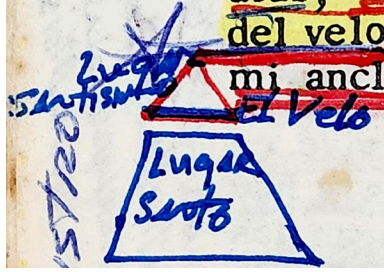 del velo
mi ancl
Lugar
SANTISIMO
El Velo
Lugar
Santo